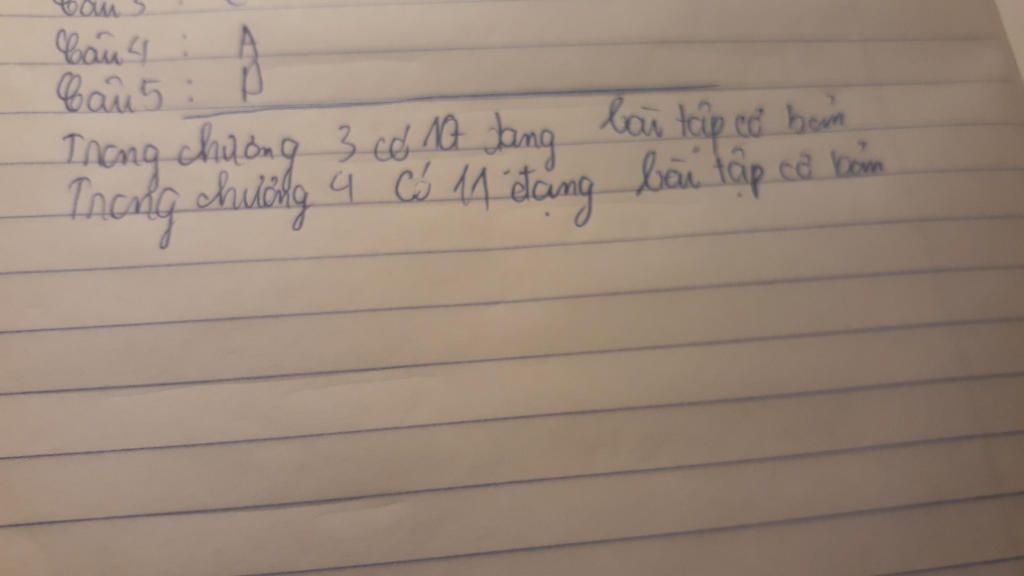 Câu 3 :
Câu 4 : A
Câu 5 : D
Trong chương 3 có 10 dạng bài tập cơ bản
Trong chương 4 có 11 dạng bài tập cơ bản